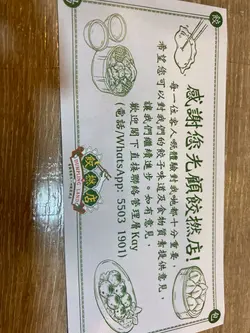 感謝您光顧餃撚店!
每一位客人嘅體驗對我哋都十分重要,
希望您可以對我們的餃子味道及食物質素提供意見,
讓我們繼續進步。如有意見,
歡迎閣下直接聯絡管理層Kay
(電話/WhatsApp: 5503 1901)
餃撚店
餃
包